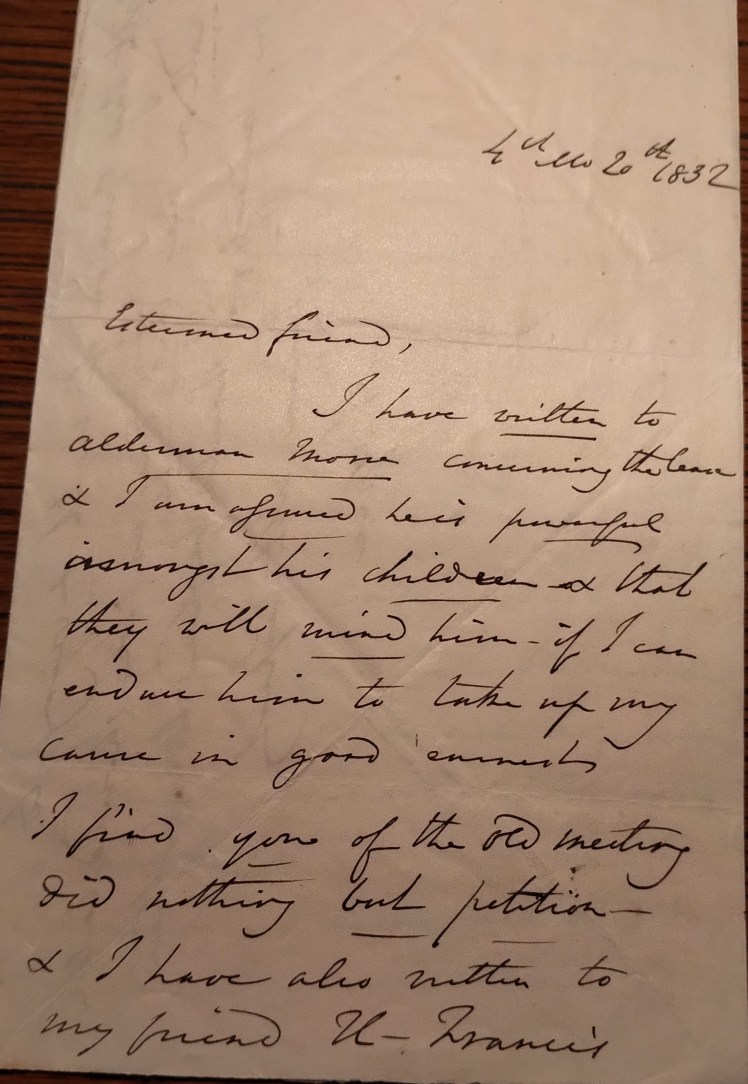 4th Mo 20th 1832
Esteemed friend,
I have written to
alderman concerning the lease
& I am assured he is powerful
amongst his children & that
they will mind him - if I can
enduce him to take up my
cause in good earnest
I find you of the old meeting
did nothing but petition -
& I have also written to
my friend - Francis